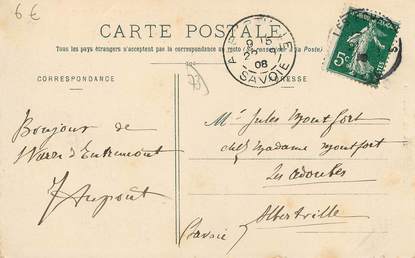 6 €
CARTE POSTALE
Tous les pays étrangers n'acceptent pas la correspondance au recto (Se renseigner à la Poste).
CORRESPONDANCE
ADRESSE
73
ALBERTVILLE
08
SAVOIE
5c
Bonjour de
d'Entremont
Mr Jules Montfort
chez Madame Montfort
Les Adoubes
Albertville
Savoie